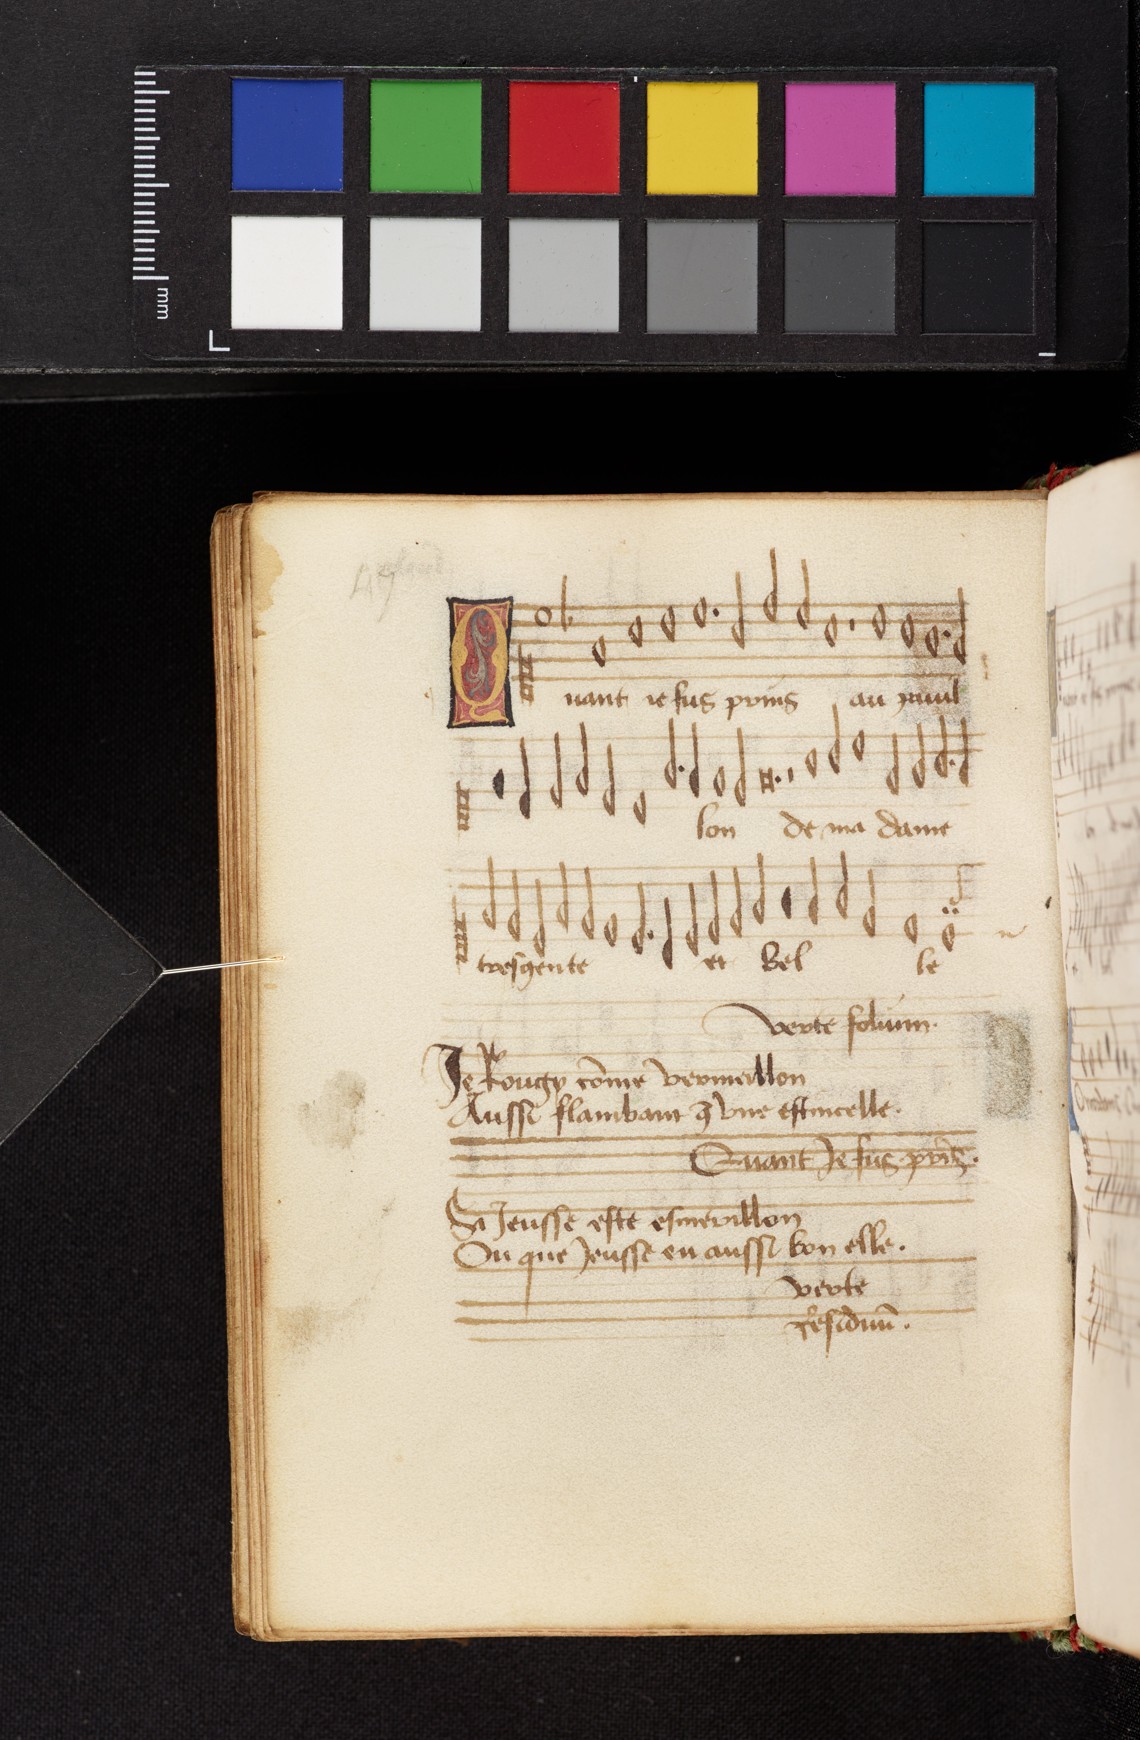 mm
47
Quant ie fus prins au pauil
lon de ma dame
tresgente et bel le
verte folium.
Je Rougy cõme vermeillon
Aussi flambant q̃ vne estincelle.
Quant Je fus prins.
Si Jeusse este esmerillon
Ou que Jeusse eu aussi bon elle.
verte
residuũ.